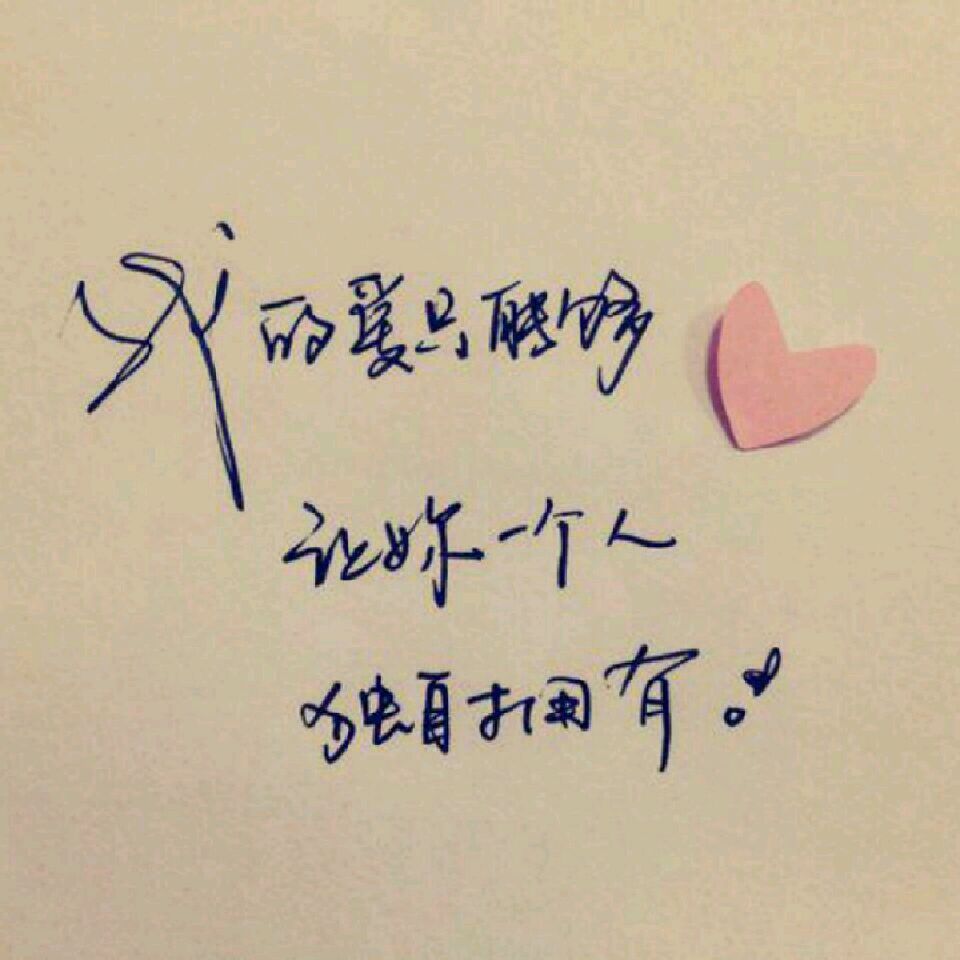 我的愛只能够
让妳一个人
独自拥有。